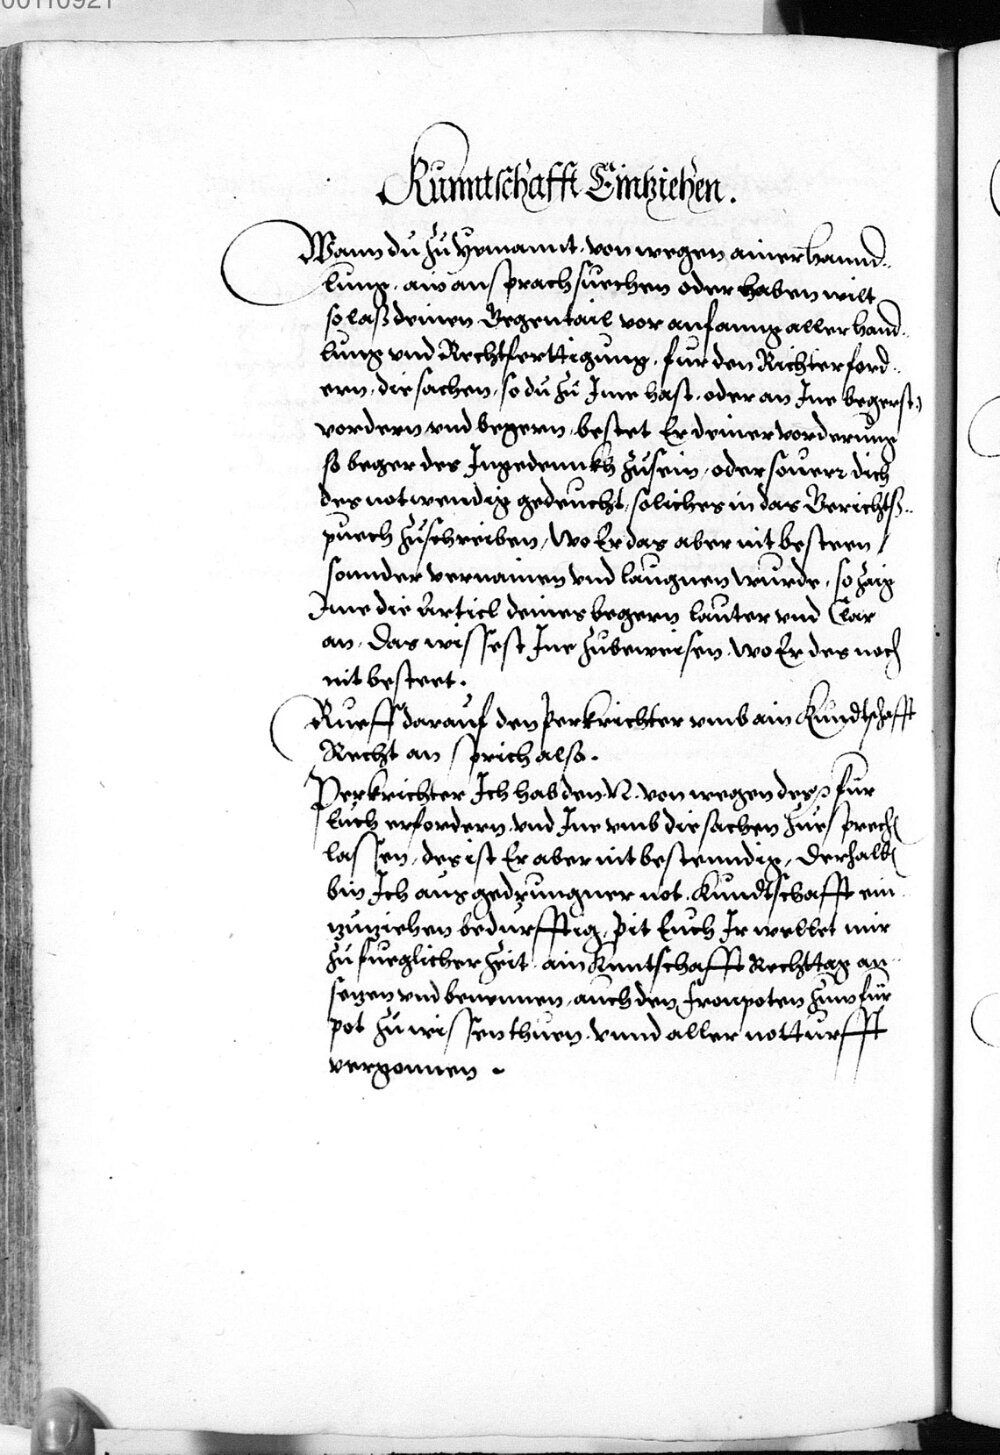 00110921
Kunntschafft Eintziehen.
Wann du zu yemannt. von wegen ainer hannd-
lung. ain ansprach suechen oder haben wilt
so lass deinen Gegentail vor anfanng aller hand-
lung vnd Rechtferttigung. fur den Richter ford-
ern. die sachen, so du zu Ime hast. oder an Ine begerst
vordern vnd begern. bestet Er deiner vorderung
so beger des Ingedennkh zusein, oder souerr dich
des notwendig gedeucht, soliches in das Gerichtß-
puech zuschreiben, Wo Er das aber nit besteen /
sonnder vernainen vnd laugnen wurde, so zaig
Ime die Articl deines begern lauter vnd Clar
an. Das wissest Ine zubeweisen. Wo Er des noch
nit besteet.
Rueff darauf den Perkrichter vmb ain Kundtschafft
Recht an sprich also.
Perkrichter Ich hab den N. von wegen des fur
Euch erfordern. vnd Ine vmb die sachen zuesprechen
lassen, des ist Er aber nit bestenndig, Derhalben
bin Ich aus gedrungner not. Kundtschafft ein
zuziehen bedurfftig. Pit Euch Ir wellet mir
zu fueglicher Zeit. ain Kuntschafft Rechttag an-
setzen vnd benennen. auch den Fronpoten zum für
pot zu wissen thuen. vnnd aller notturfft
vergonnen.